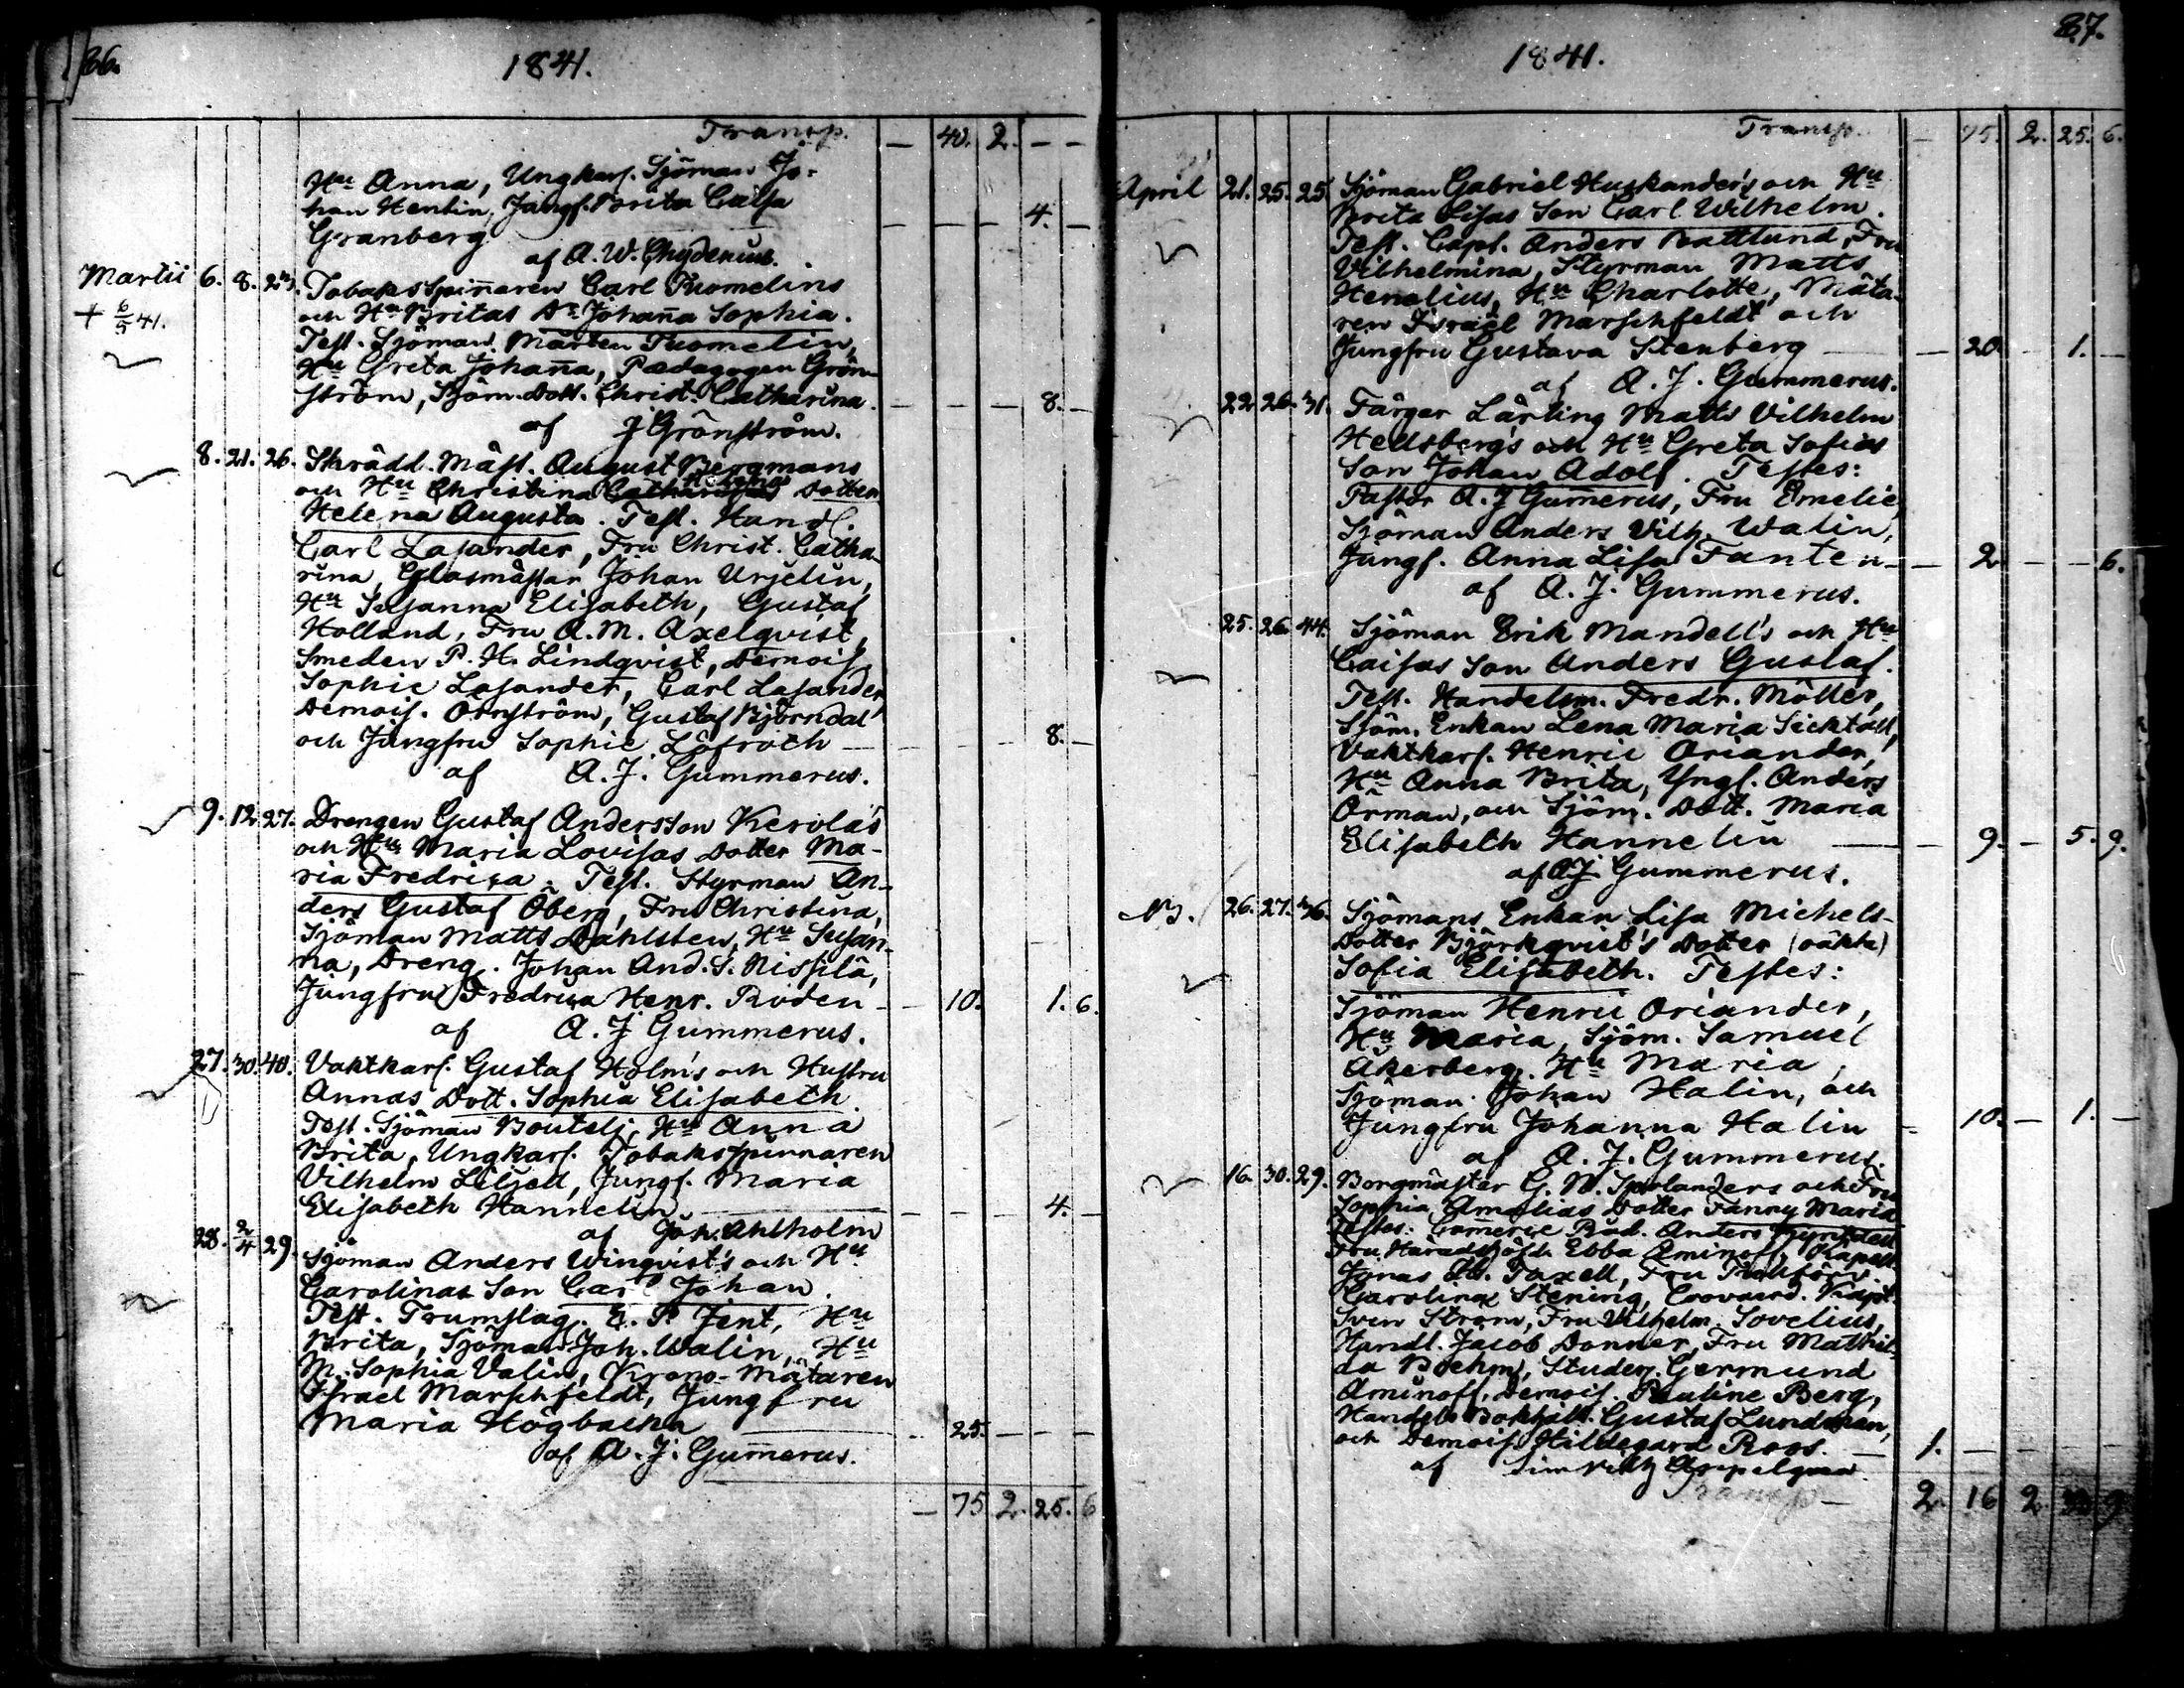 86.
1841.
Transp. — 40. 2. — —
Hu Anna, Ungkarl. Sjöman Jo-
han Henlin, Jungf. Brita Caisa
Granberg — — — 4. —
af A. W. Chydenius.
Martii 6. 8. 23. Tobaksspinaren Carl Tuomelins
+ 6/5 41. och Hu Britas Dr Johana Sophia.
Test. Sjöman Mårten Tuomelin,
Hu Greta Johana, Pædagogen Grön-
ström, Sjöm. Dott. Christ. Catharina. — — — 8. —
af J Grönström.
8. 21. 26. Skrädd. Mäst. August Bergmans
och Hu Christina Dotter
Helena Augusta. Test. Handl.
Carl Lasander, Fru Christ. Catha-
rina, Glasmästar Johan Urjelin,
Hu Susanna Elisabeth, Gustaf
Holland, Fru A. M. Axelqvist,
Smeden P. H. Lindqvist, Demois.
Sophie Lasander, Carl Lasander
Demois. Örnström, Gustaf Björndal
och Jungfru Sophie Löfroth — — — — 8. —
af A. J. Gummerus.
9. 12. 27. Drengen Gustaf Andersson Kerola's
och Hu Maria Lovisas Dotter Ma-
ria Fredrica. Test. Styrman An-
ders Gustaf Öberg, Fru Christina,
Sjöman Matts Dahlsten, Hu Susan-
na, Dreng. Johan And. S. Nissilä,
Jungfru Fredrica Henr. Roden — — 10. 1. 6.
af A. J Gummerus.
27. 30. 40. Vaktkarl. Gustaf Holm's och Hustru
Annas Dott. Sophia Elisabeth.
Test. Sjöman Boutelj, Hu Anna
Brita, Ungkarl. Tobaksspinnaren
Vilhelm Liljell, Jungf. Maria
Elisabeth Hannelin. — — — — 4. —
af Joh. Ahlholm
28. 2/4 29. Sjöman Anders Winqvist's och Hu
Carolinas Son Carl Johan.
Test. Trumslag. E. P. Jent, Hu
Brita, Sjöman Joh. Walin, Hu
M. Sophia Valin, Krono-Mätaren
Israel Marschfeldt, Jungfru
Maria Högbacka — 25. — — —
af A. J. Gumerus.
— 75 2. 25. 6
87.
1841.
Transp. — 75. 2. 25. 6.
April 21. 25. 25. Sjöman Gabriel Huskander's och Hu
Brita Lisas Son Carl Wilhelm.
Test. Capt. Anders Battlund, Fru
Vilhelmina, Styrman Matts
Henelius, Hu Charlotte, Mäta-
ren Israël Marschfeldt och
Jungfru Gustava Stenberg — — 20 — 1. —
af A. J. Gummerus.
22 26. 31. Färger Lärling Matts Vilhelm
Hellsbergs och Hu Greta Sofias
Son Johan Adolf. Testes:
Pastor A. J Gumerus, Fru Emelie,
Sjöman Anders Vilh. Walin,
Jungf. Anna Lisa Fanten — — 2 — — 6.
af A. J. Gummerus.
25. 26. 44. Sjöman Erik Mandell's och Hu
Caisas Son Anders Gustaf.
Test. Handelsm. Fredr. Möller,
Sjöm. Enkan Lena Maria Sicktäll,
Vaktkarl. Henric Oriander,
Hu Anna Brita, Yngl. Anders
Örman, och Sjöm. Dott. Maria
Elisabeth Hannelin — — 9. — 5. 9.
af AJ Gummerus.
26. 27. 36. Sjömans Enkan Lisa Michels-
Dotter Björkqvist's Dotter (oäkta)
Sofia Elisabeth. Testes:
Sjöman Henric Oriander,
Hu Maria, Sjöm. Samuel
Åkerberg, Hu Maria,
Sjöman Johan Halin, och
Jungfru Johanna Halin — 10. — 1. —
af A. J. Gummerus.
16. 30. 29. Borgmäster G. W. och Fru
Sophia Amalias Dotter Fanny Maria
Testes: Comerce Råd. Anders
Fru Häradshöfd. Ebba Aminoff, Kapell.
Jonas Taxell, Fru
Carolina Stening, Kapt.
Sven Ström, Fru Vilhelm. Sovelius,
Handl. Jacob Donner, Fru Mathil-
da Boehm, Studer. Germund
Aminoff, Demois. Pauline Berg,
Handels Bokhåll. Gustaf Lundman,
och Demois. Hildegard Roos. — 1. — — — —
af Sim Vilh Appelgren.
Transp — 2. 16 2. 9